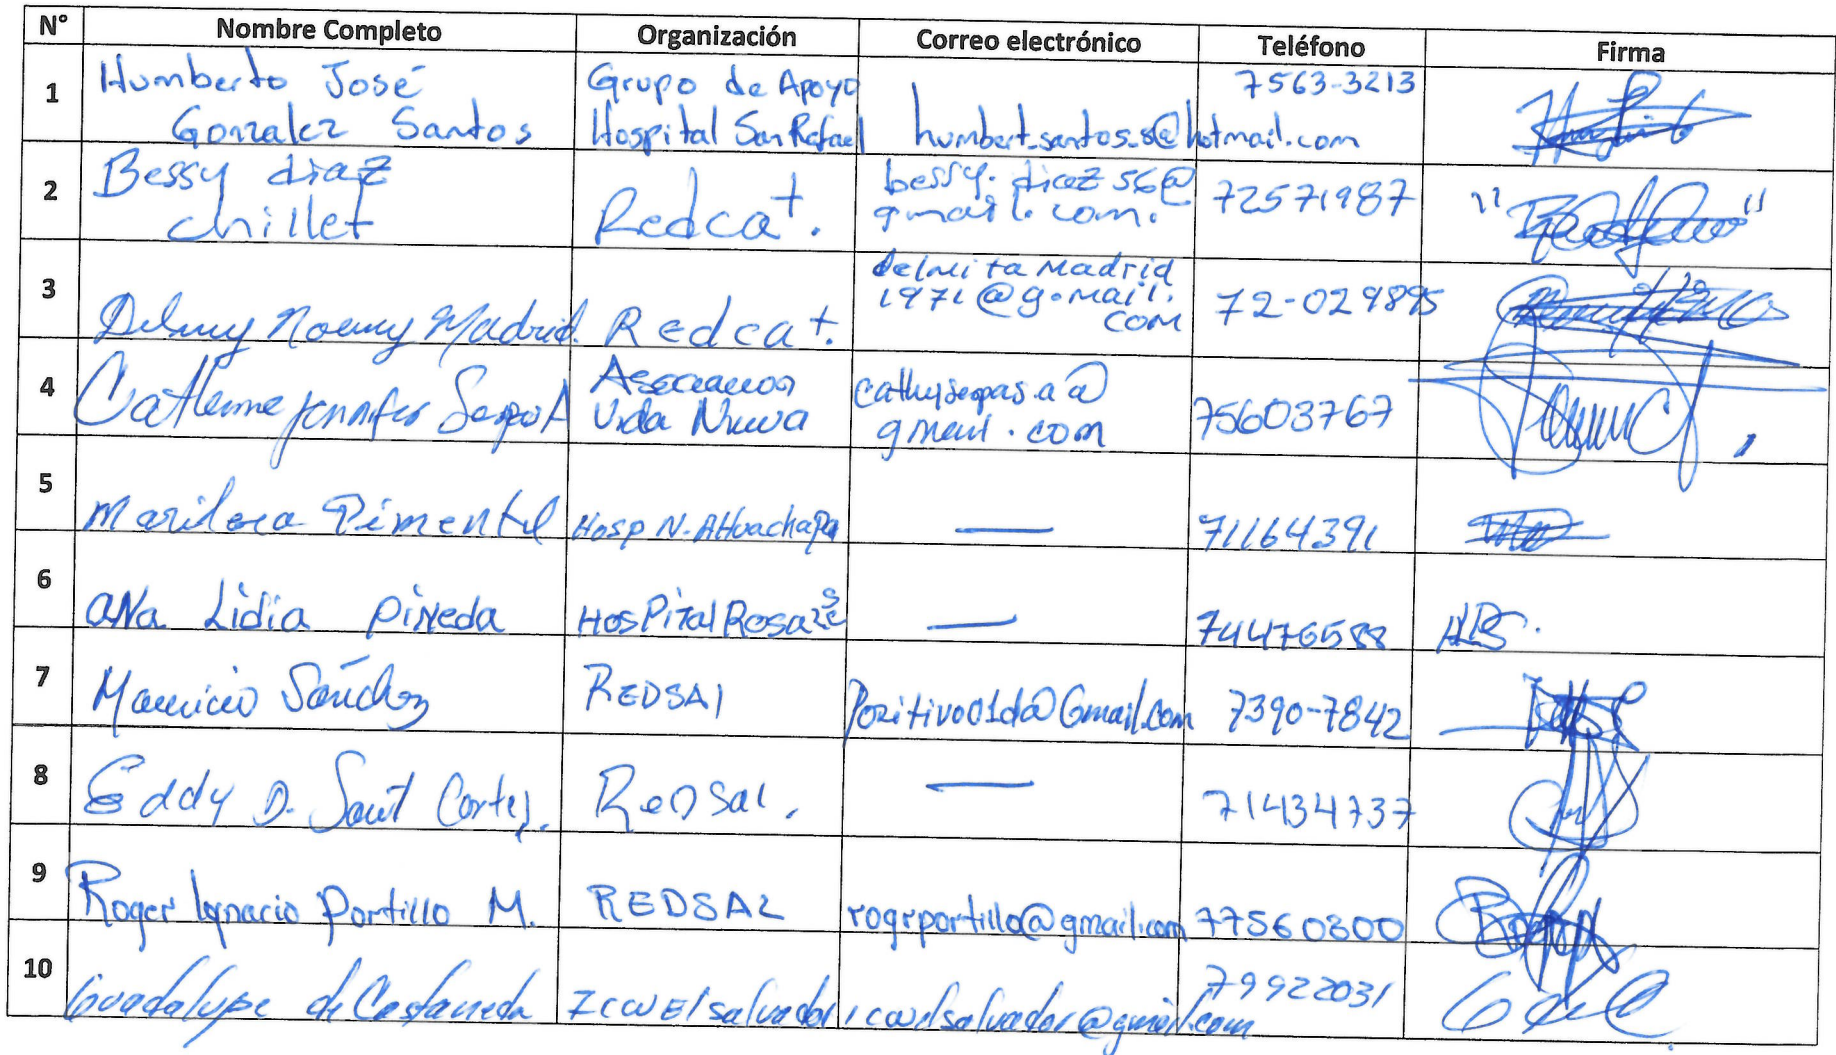 N° Nombre Completo Organización Correo electrónico Teléfono Firma
1 Humberto José Gonzalez Santos Grupo de Apoyo Hospital San Rafael humbert_santos_s@hotmail.com 7563-3213
2 Bessy diaz chillet Redca+. bessy.diaz56@gmail.com. 72571987
3 Delmy Noemy Madrid. Redca+. delmitamadrid1971@gmail.com 72-029895
4 Jennifer Vida Nueva gmail.com 75603767
5 Pimentel Hosp N. AHuachapa 71164391
6 ANa Lidia PiNeda HosPital Rosa 74476588
7 Mauricio Sánchez REDSAl Pozitivo01da@Gmail.com 7390-7842
8 Eddy D. Cortez. RedSal. 71434737
9 Roger Ignacio Portillo M. REDSAL rogrportillo@gmail.com 77560300
10 Guadalupe de Castaneda ICW El salvador icwelsalvador@gmail.com 79922031